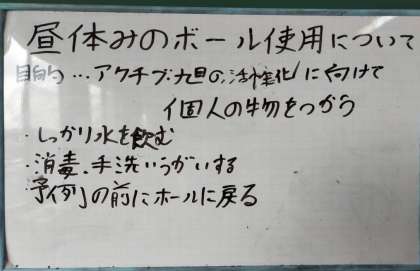 昼休みのボール使用について
目的…アクチブ九日の活性化に向けて
個人の物をつかう
・しっかり水を飲む
・消毒、手洗いうがいする
・予例の前にホールに戻る